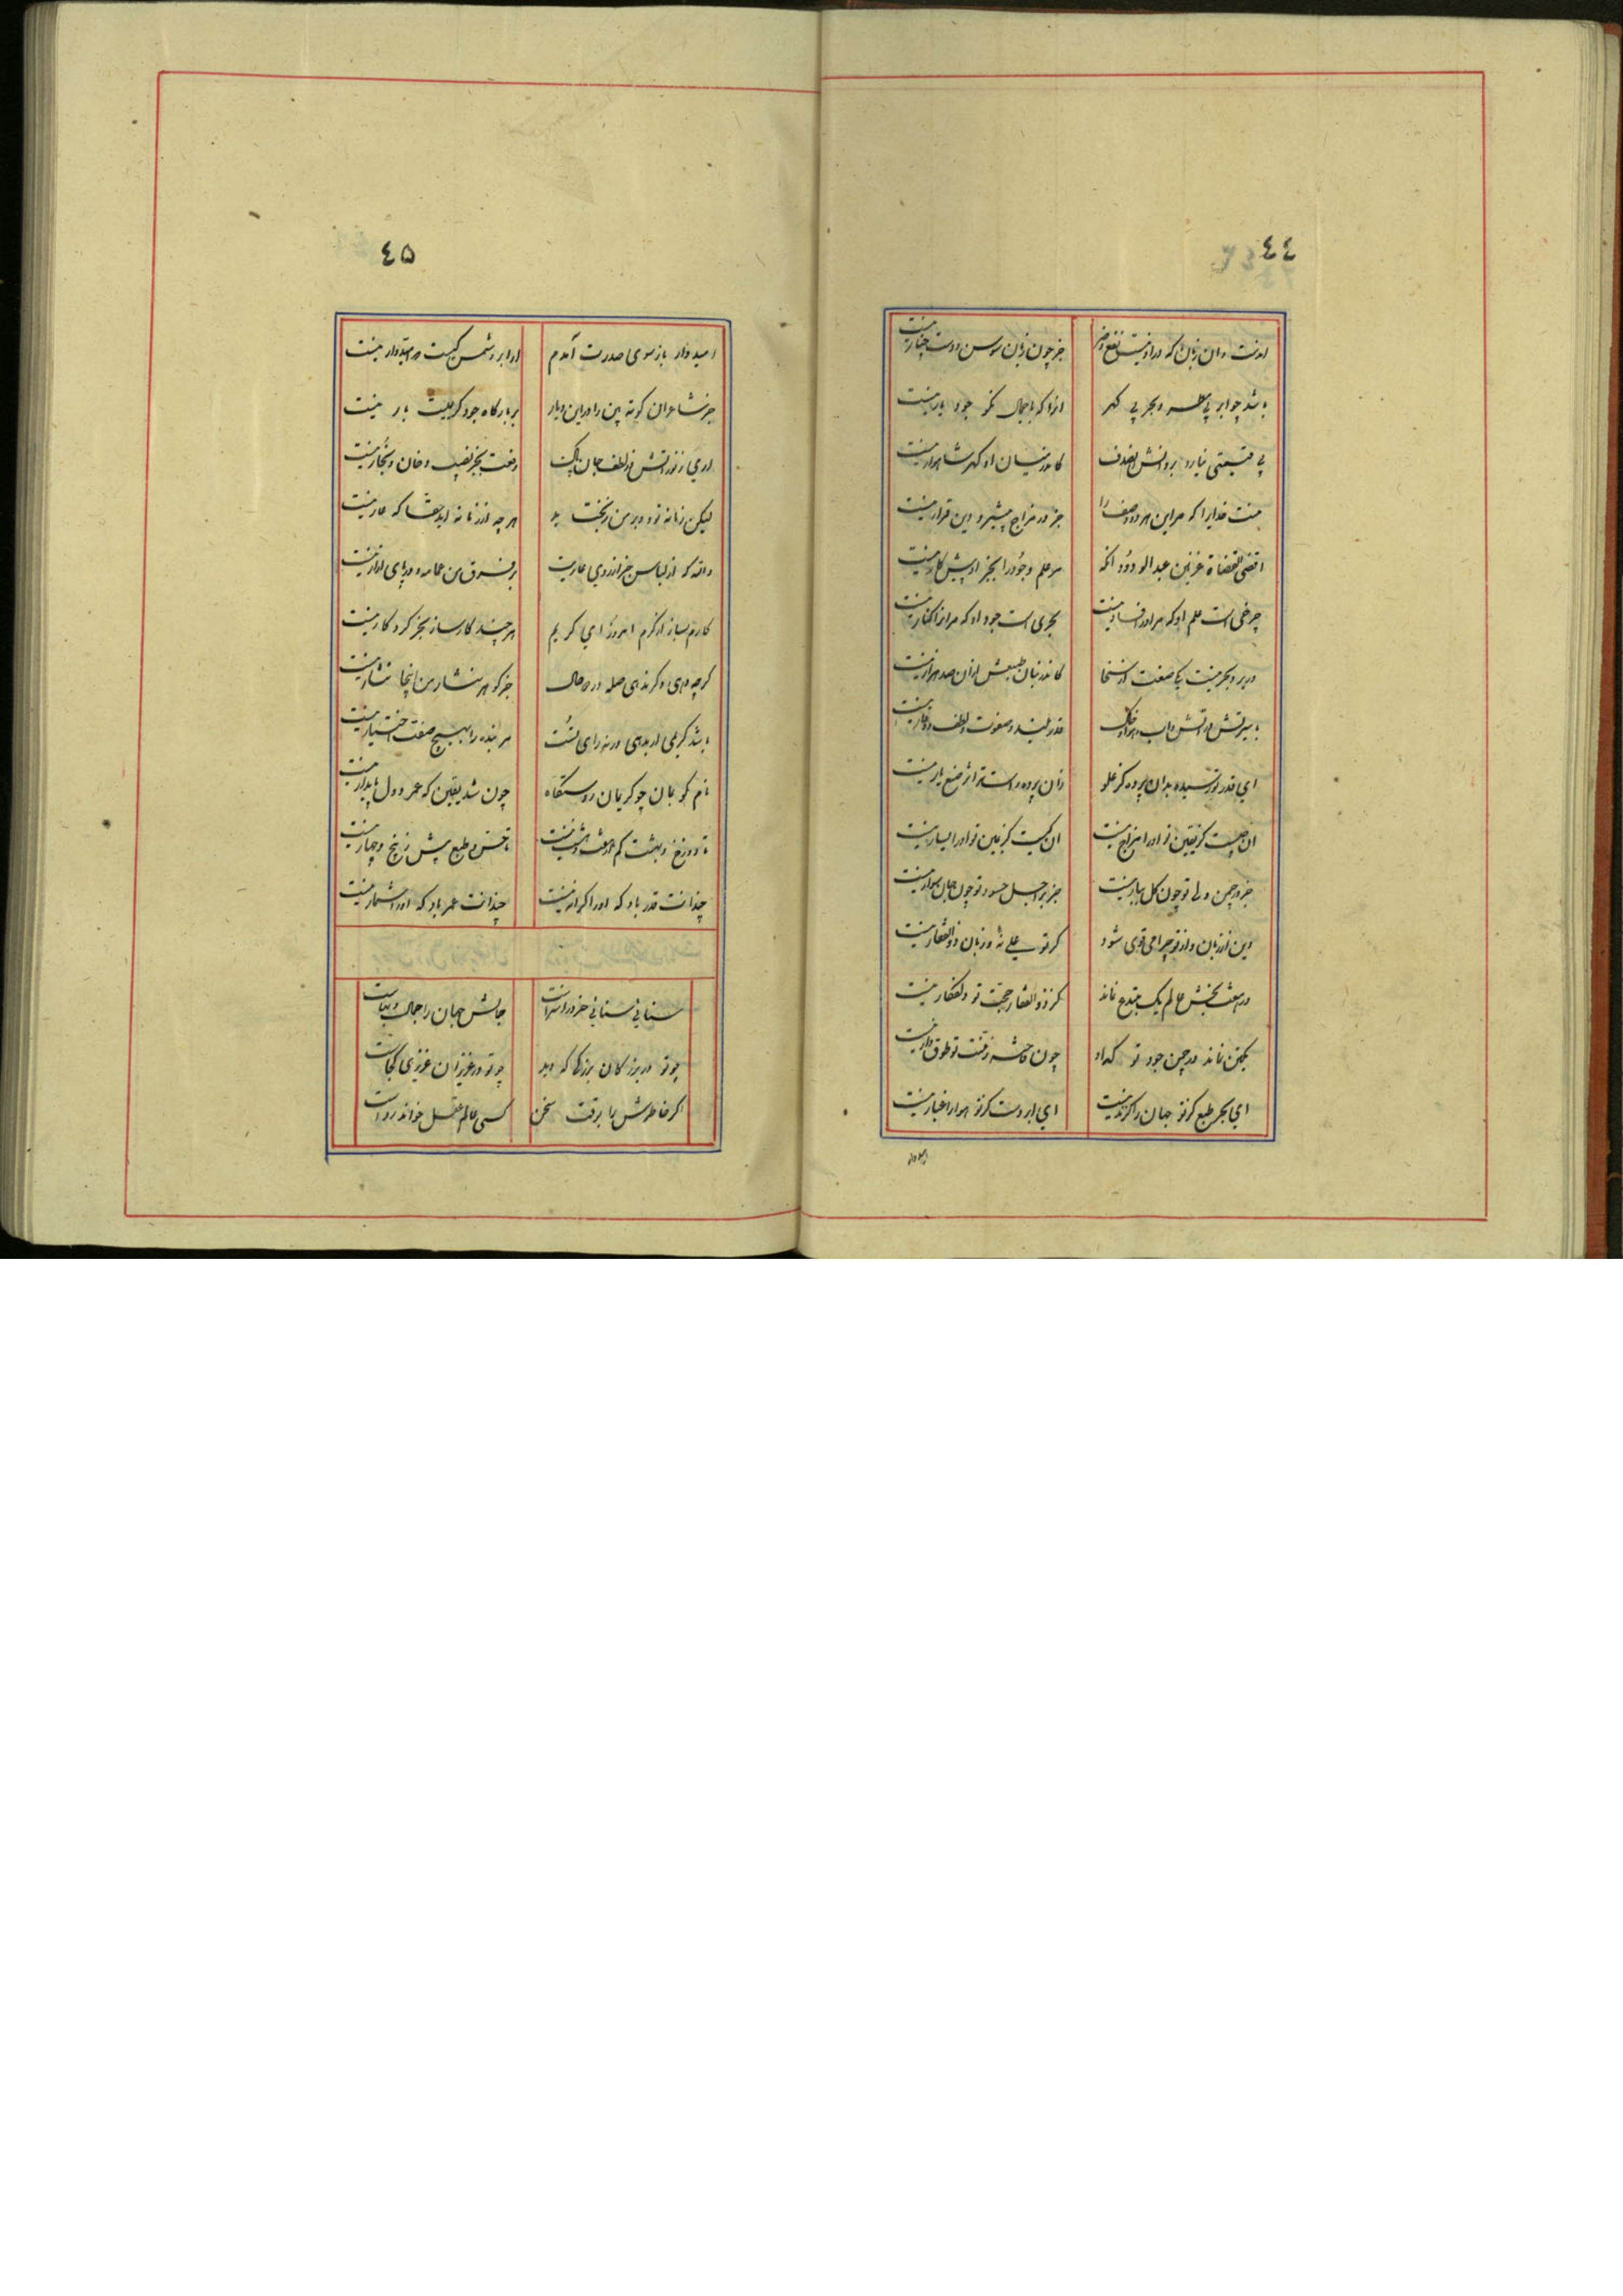 ٤٤
اوست و ان زبان که در او نیست نفع و ضر جز چون زبان سوسن و دست چنار نیست
باشد چو ابر بی مطر و بحر بی کهر انرا که با جمال نکو جود یار نیست
بی قیمتی نیارد بر دانش الصدف کاندر میان او کهر شاهوار نیست
منت خدایرا که مر این هر دو وصف را جز در مزاج دین قرار نیست
اقضی القضاة غزنین عبد الودود انکه مر علم و جود را بجز او پیشکار نیست
چرخی است علم او که مر او را فساد نیست بحری است جود او که مر انرا کنار نیست
در بر و بحر نیست یک صفت از سخا کاندر بنان طبعش از ان صد هزار نیست
با سیرتش در اتش و اب و هوا و خاک قدر بلند و صفوت و لطف و وقار نیست
ای قدر تو رسیده بدان پرده کز علو زان پرده دستاو اثر صنع یار نیست
ان چیست کز یقین تو او را مزاج نیست ان کیست کز یمین تو او را یسار نیست
جز در چمن تو چون کل ببار نیست جز بر اجل حسود تو چون جان سوار نیست
دین از زبان و از تو چرا می قوی شود کر تو علی نه و زبان ذو الفقار نیست
در هشت بخش عالم یک مبتدع نماند کز ذو الفقار حجت تو دلفکار نیست
یکتن نماند در چمن جود تو که او چون فاخته ز منت تو طوق دار نیست
ای بحر طبع کز تو جهان را کزند نیست ای ابر دست کز تو هوا را غبار نیست
امیدوار
٤٥
امیدوار باز سوی صدرت آمدم او ابر و شمس کیست که امیدوار نیست
جز شاعران کوته بین را در این دیار بر بارکاه جود کریمیت بار نیست
اری ز نور اتش و از لطف جان پاک رفعت بجز نصیب دخان و بخار نیست
لیکن زمانه تو در بر من ریخت بد هر چه از زمانه اید حقا که عار نیست
والله که از لباس جز از روی عاریت بر فرق من عمامه و در پای ازار نیست
کارم بساز از کرم امروز ای کریم هر چند کار ساز بجز کردکار نیست
کر چه دهی و کر ندهی صله در دو حال جز کوهر نثار من اینجا نثار نیست
باشد کریمی ار بدهی ور نه رای تست مر بنده را بهیچ صفت اختیار نیست
نام نکو بمان چو کریمان ز دستکاه چون شد یقین که عمر و دول پایدار نیست
تا دوزخ و بهشت کم از هفت و هشت نیست تا حس و طبع بیش ز پنج و چهار نیست
چندانت قدر باد که او را کران نیست چندانت عمر باد که او را شمار نیست
سنائی سنائی خرد را سزاست جمالش جهان را جمال و بهاست
چو تو در بزرکان بزرکی که دید چو تو در عزیزان عزیزی کجاست
اکر خاطرش را برقت سخن کسی عالم عقل خواند رواست